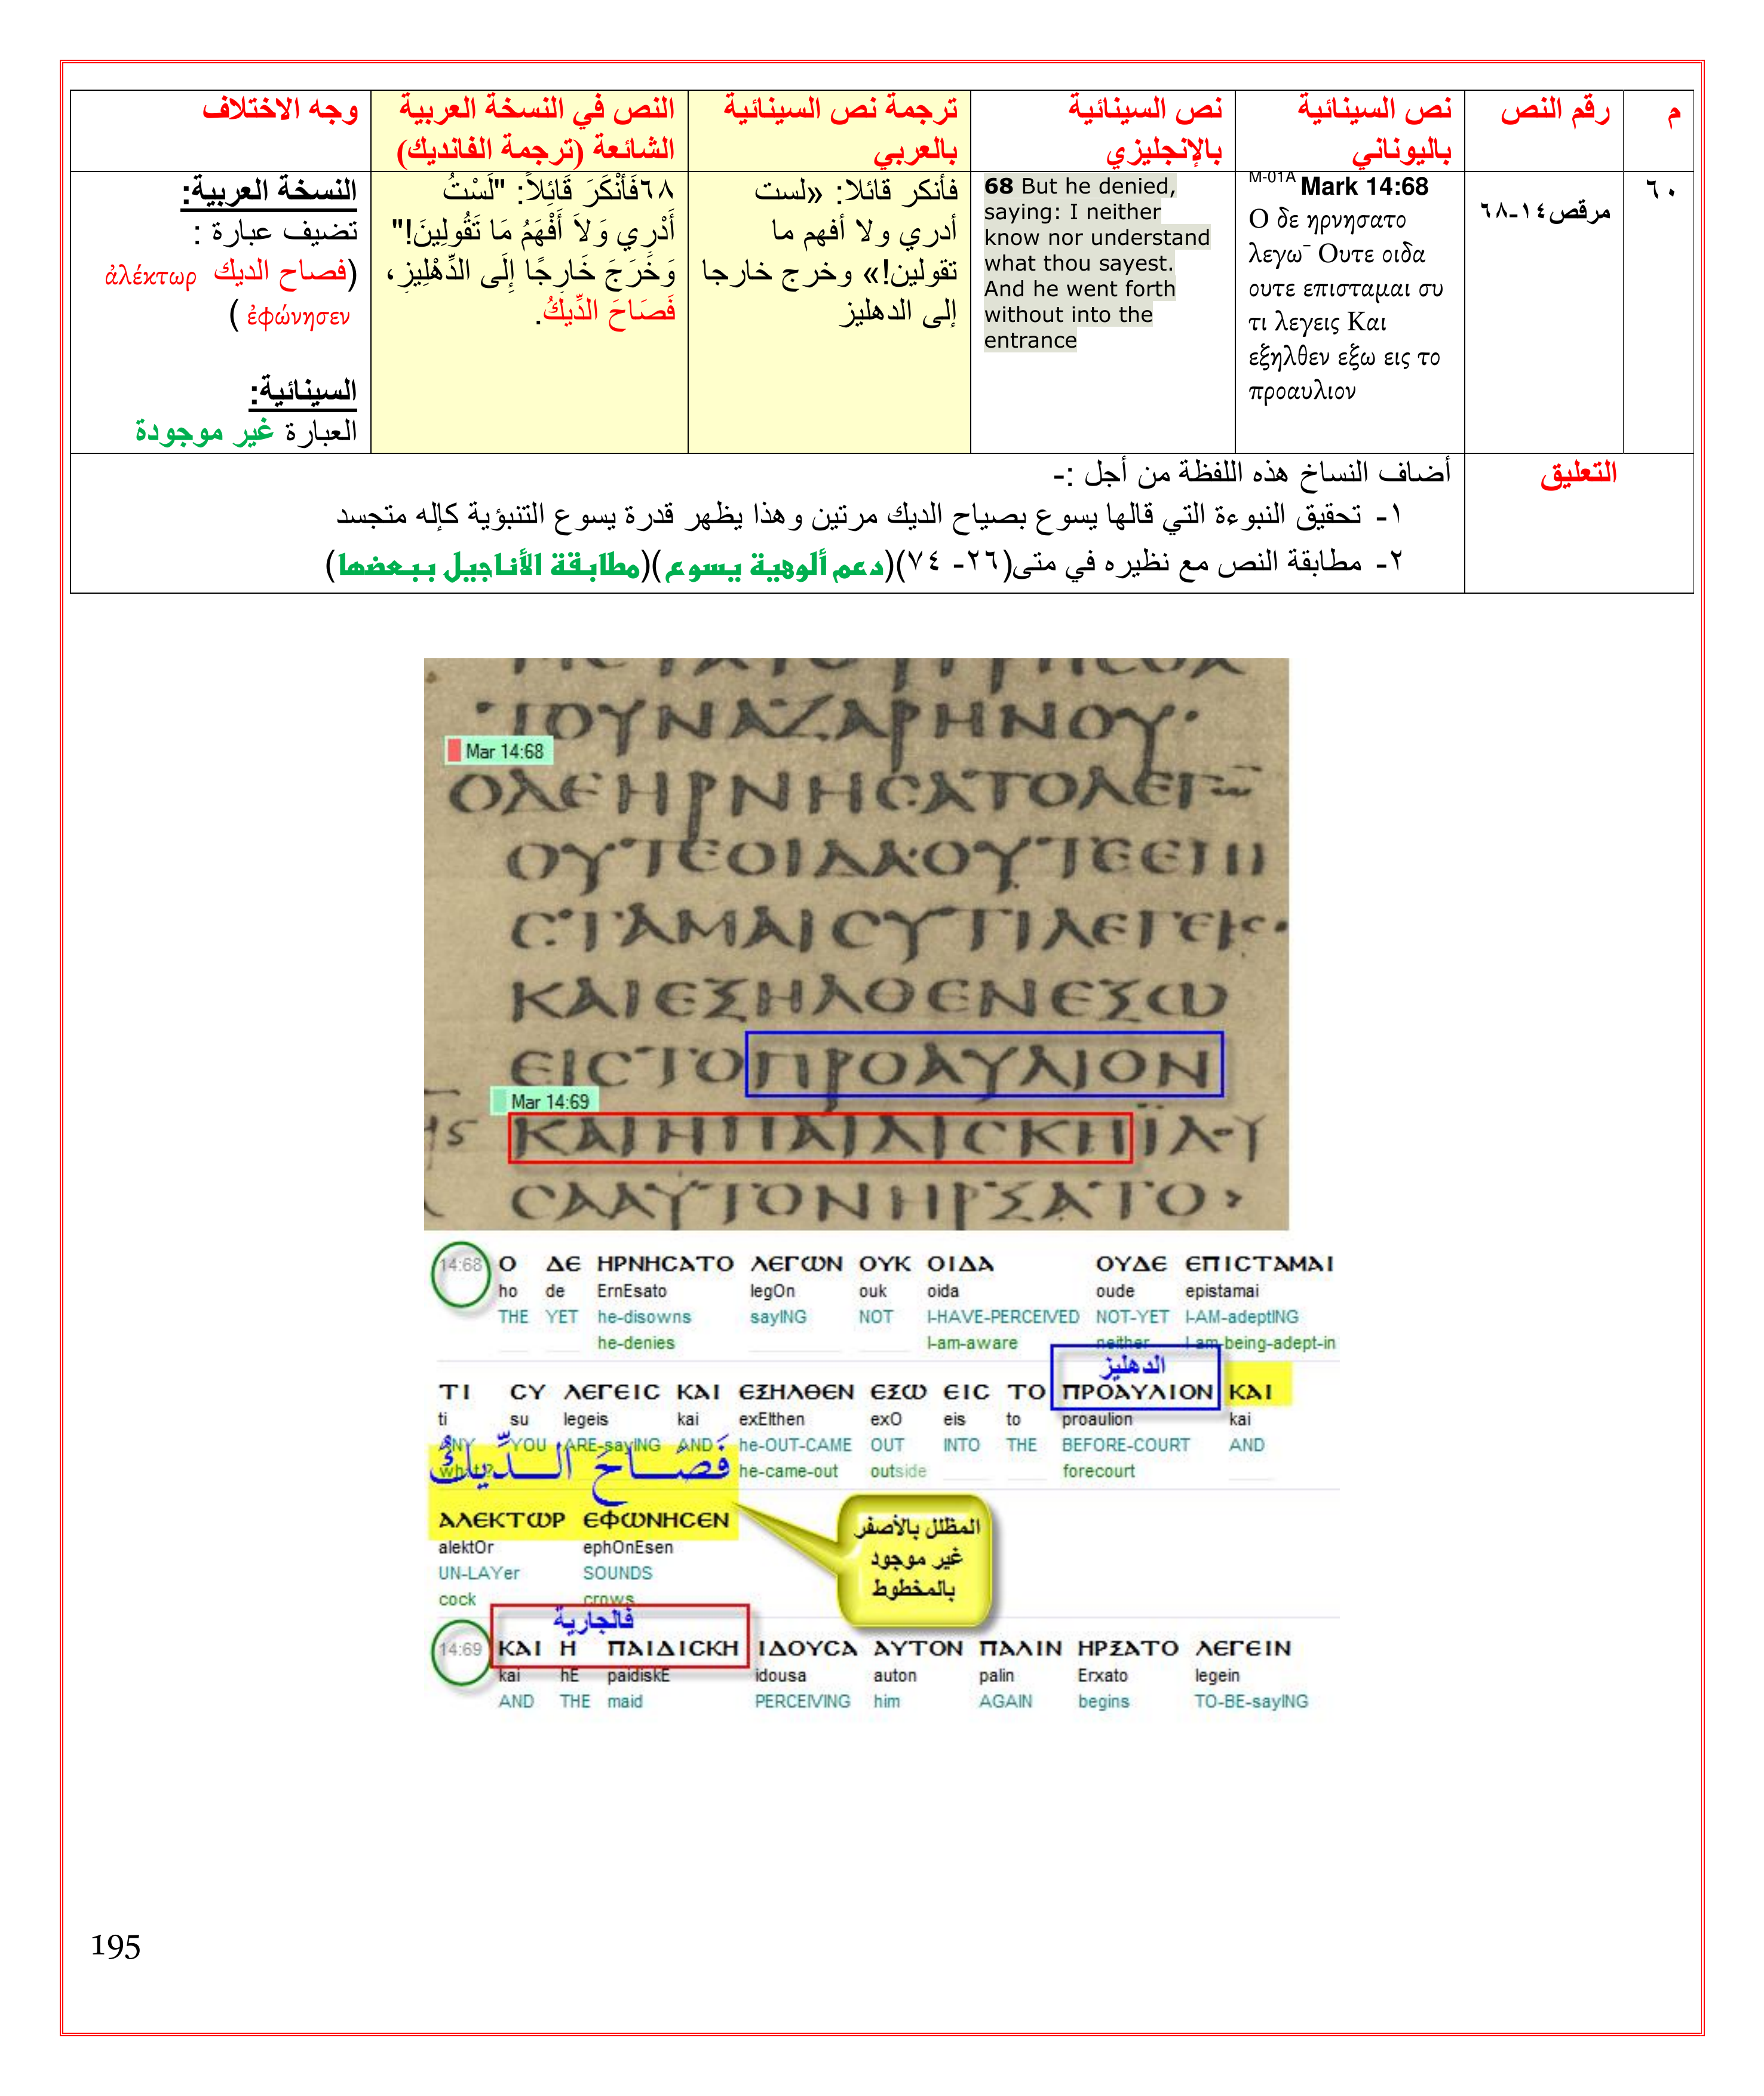 م
رقم النص
نص السينائية
باليوناني
نص السينائية
بالإنجليزي
ترجمة نص السينائية
بالعربي
النص في النسخة العربية
الشائعة (ترجمة الفانديك)
وجه الاختلاف
٦٠
مرقص١٤-٦٨
M-01A Mark 14:68
Ο δε ηρνησατο
λεγω¯ Ουτε οιδα
ουτε επισταμαι συ
τι λεγεις Και
εξηλθεν εξω εις το
προαυλιον
68 But he denied,
saying: I neither
know nor understand
what thou sayest.
And he went forth
without into the
entrance
فأنكر قائلا: «لست
أدري ولا أفهم ما
تقولين!» وخرج خارجا
إلى الدهليز
٦٨فَأَنْكَرَ قَائِلاً: "لَسْتُ
أَدْرِي وَلاَ أَفْهَمُ مَا تَقُولِينَ!"
وَخَرَجَ خَارِجًا إِلَى الدِّهْلِيزِ،
فَصَاحَ الدِّيكُ.
النسخة العربية:
تضيف عبارة :
(فصاح الديك ἀλέκτωρ
ἐφώνησεν )
السينائية:
العبارة غير موجودة
التعليق
أضاف النساخ هذه اللفظة من أجل :-
١- تحقيق النبوءة التي قالها يسوع بصياح الديك مرتين وهذا يظهر قدرة يسوع التنبؤية كإله متجسد
٢- مطابقة النص مع نظيره في متى(٢٦- ٧٤)(دعم ألوهية يسوع)(مطابقة الأناجيل ببعضها)
ΤΟΥΝΑΖΑΡΗΝΟΥ·
Mar 14:68
ΟΔΕΗΡΝΗϹΑΤΟΛΕΓⲰ¯
ΟΥΤΕΟΙΔΑΟΥΤΕΕΠΙ
ϹΤΑΜΑΙϹΥΤΙΛΕΓΕΙϹ·
ΚΑΙΕΞΗΛΘΕΝΕΞⲰ
ΕΙϹΤΟΠΡΟΑΥΛΙΟΝ
Mar 14:69
ΚΑΙΗΠΑΙΔΙϹΚΗΪΔΟΥ
ϹΑΑΥΤΟΝΗΡΞΑΤΟ>
14:68 Ο ΔΕ ΗΡΝΗϹΑΤΟ ΛΕΓⲰΝ ΟΥΚ ΟΙΔΑ ΟΥΔΕ ΕΠΙϹΤΑΜΑΙ
ho de ErnEsato legOn ouk oida oude epistamai
THE YET he-disowns sayING NOT I-HAVE-PERCEIVED NOT-YET I-AM-adeptING
he-denies I-am-aware neither I-am-being-adept-in
الدهليز
ΤΙ ϹΥ ΛΕΓΕΙϹ ΚΑΙ ΕΞΗΛΘΕΝ ΕΞⲰ ΕΙϹ ΤΟ ΠΡΟΑΥΛΙΟΝ ΚΑΙ
ti su legeis kai exElthen exO eis to proaulion kai
ANY YOU ARE-sayING AND he-OUT-CAME OUT INTO THE BEFORE-COURT AND
what? he-came-out outside forecourt
فَصَاحَ الدِّيكُ
ΑΛΕΚΤⲰΡ ΕΦⲰΝΗϹΕΝ
alektOr ephOnEsen
UN-LAYer SOUNDS
cock crows
المظلل بالأصفر
غير موجود
بالمخطوط
فالجارية
14:69 ΚΑΙ Η ΠΑΙΔΙϹΚΗ ΙΔΟΥϹΑ ΑΥΤΟΝ ΠΑΛΙΝ ΗΡΞΑΤΟ ΛΕΓΕΙΝ
kai hE paidiskE idousa auton palin Erxato legein
AND THE maid PERCEIVING him AGAIN begins TO-BE-sayING
195